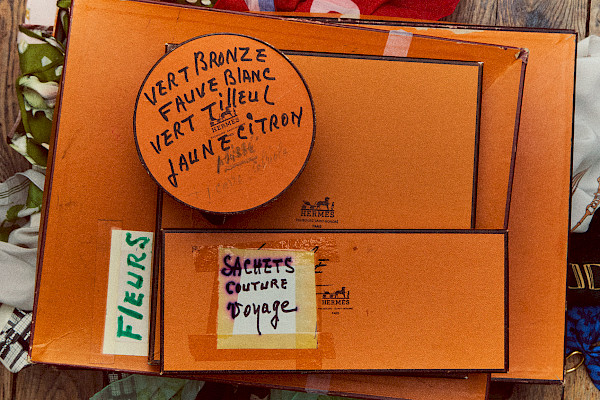 VERT BRONZE
FAUVE BLANC
VERT TILLEUL
HERMÈS
JAUNE CITRON
HERMÈS
PARIS
FLEURS
SACHETS
COUTURE
Voyage
HERMÈS
PARIS